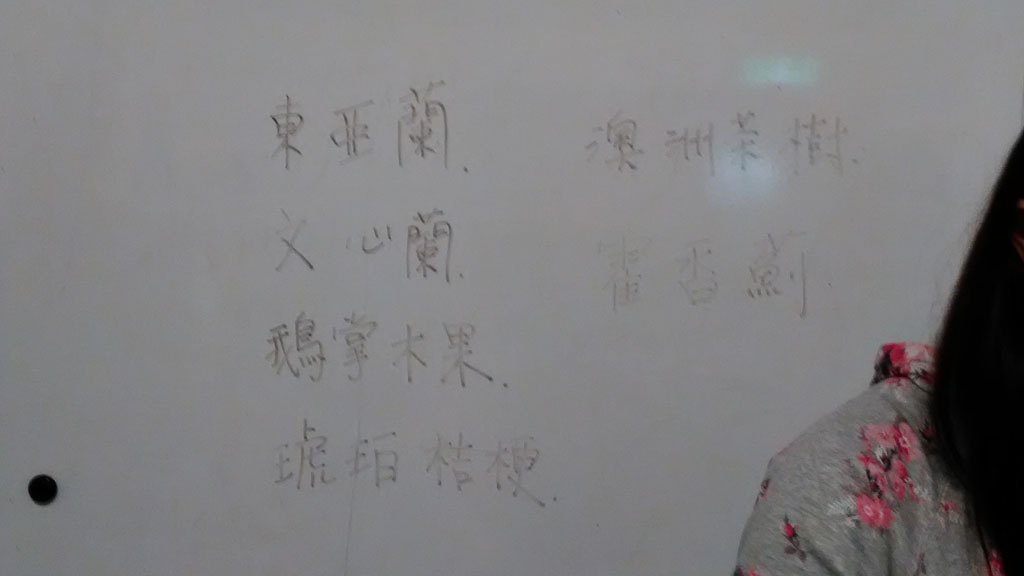 東亞蘭.
文心蘭.
鵝掌木果.
琥珀桔梗.
澳洲茶樹.
藿香薊.